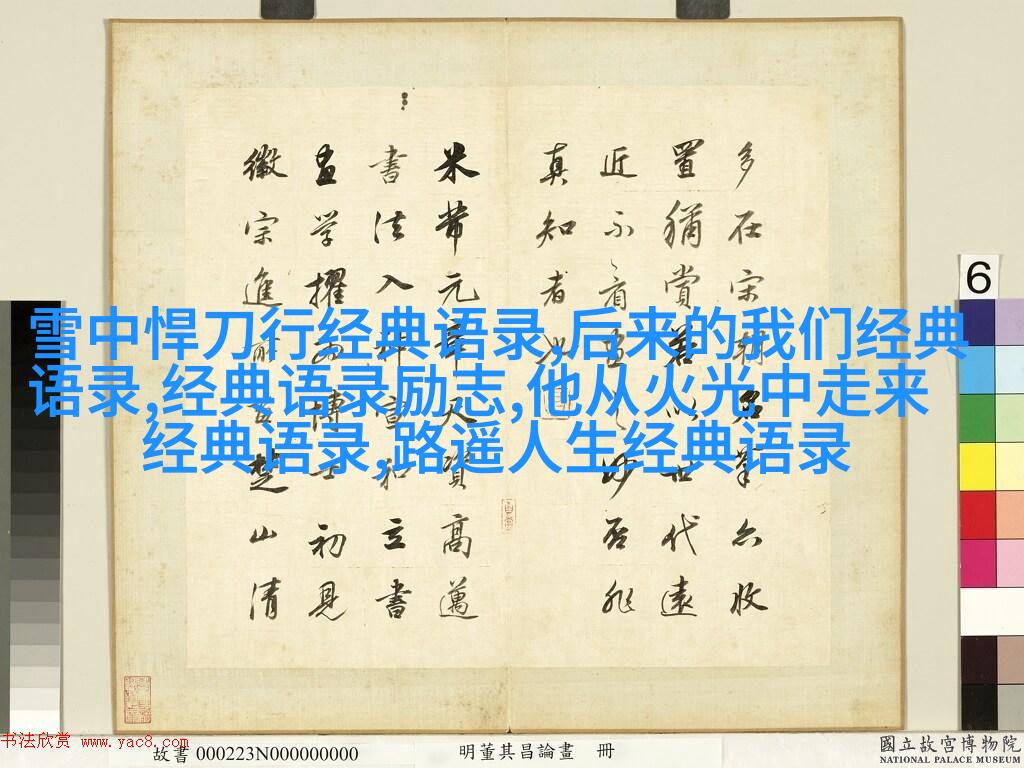 雪中悍刀行经典语录,后来的我们经典
语录,经典语录励志,他从火光中走来
经典语录,路遥人生经典语录
多在宋朝名筆亦收
置猶賞以世代遠
近不看畫之妙否非
真知者也
米芾元章天資高邁
書法入宣和立書
畫学擢為博士初見
徽宗進畫楚山清
6
书法欣赏 www.yac8.com
故書 000223N000000000
明董其昌論畫 冊
國立故宮博物院
NATIONAL PALACE MUSEUM